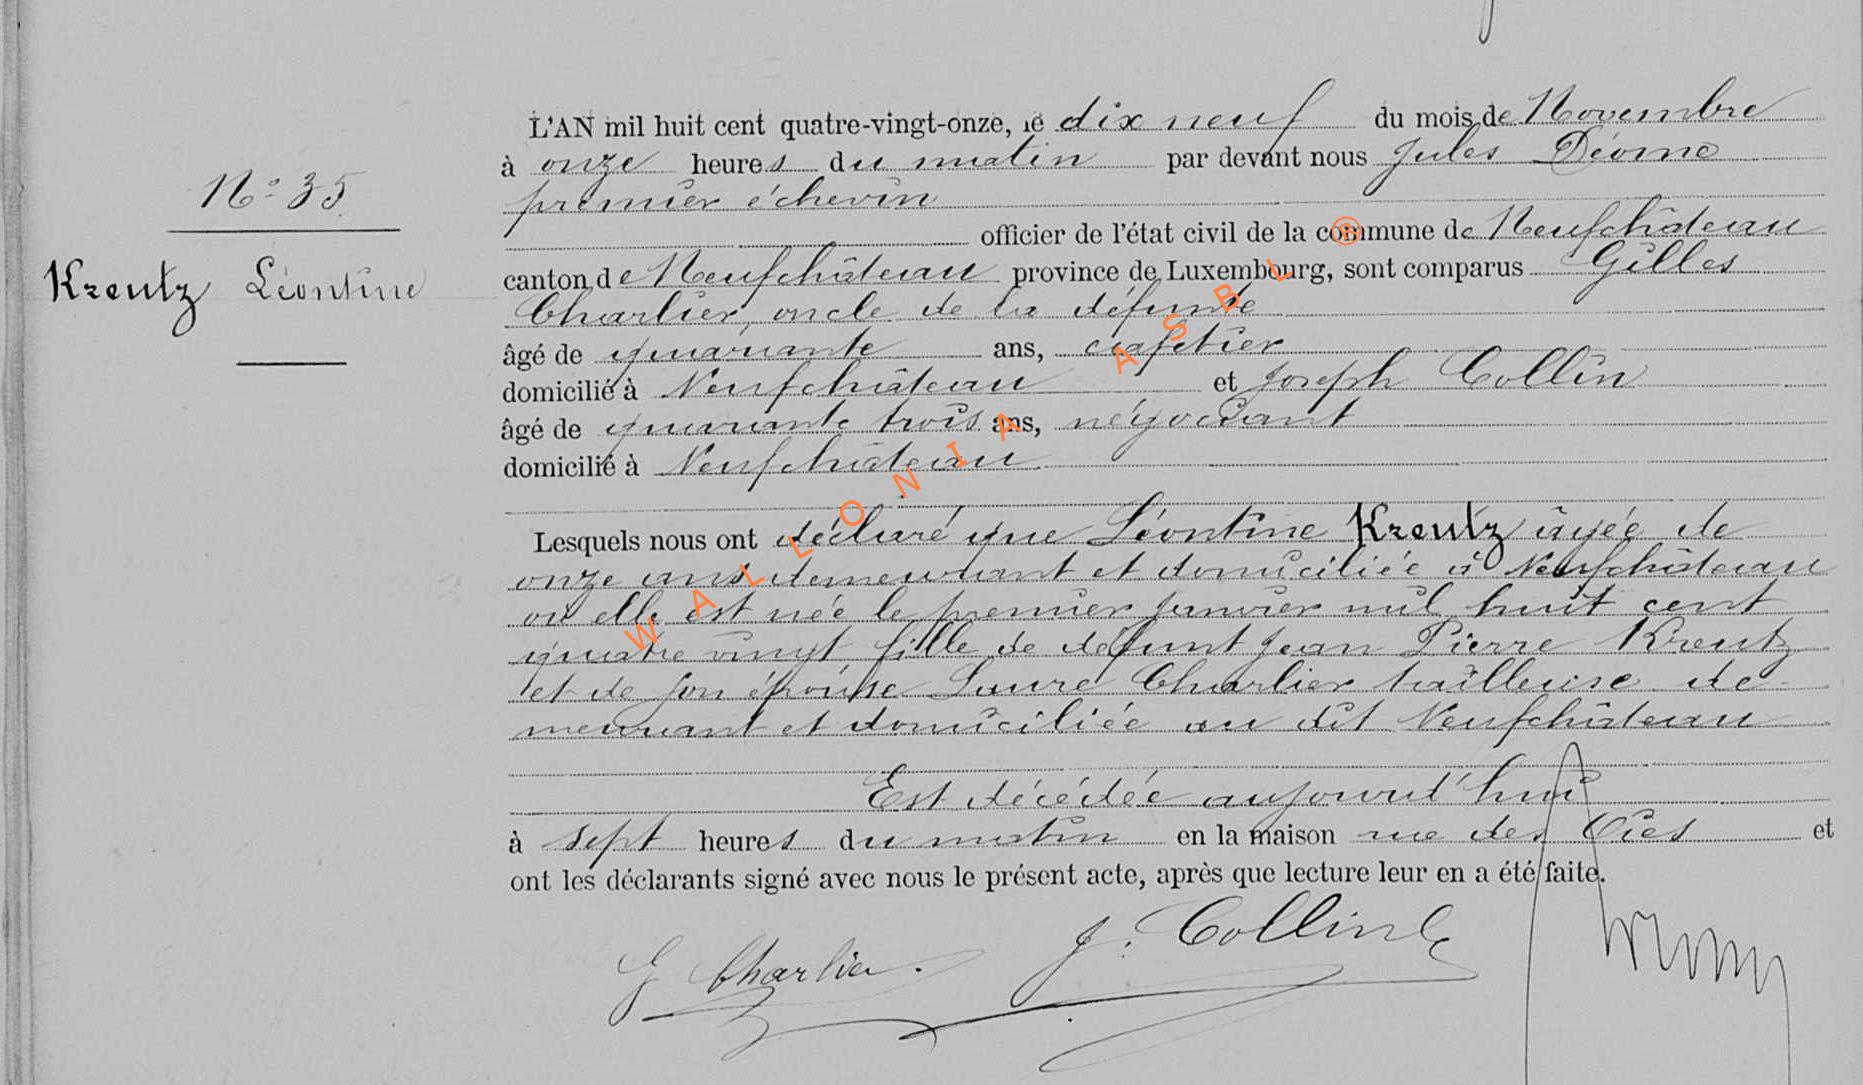 L'AN mil huit cent quatre-vingt-onze, le dix neuf du mois de Novembre
à onze heures du matin par devant nous Jules Déome
premier échevin
N° 35
officier de l'état civil de la commune de Neufchâteau
Kreutz Léontine
canton de Neufchâteau province de Luxembourg, sont comparus Gilles
Charlier, oncle de la défunte
âgé de quarante ans, cafetier
domicilié à Neufchâteau et Joseph Collin
âgé de quarante trois ans, négociant
domicilié à Neufchâteau
Lesquels nous ont déclaré que Léontine Kreutz âgée de
onze ans demeurant et domiciliée à Neufchâteau
ou elle est née le premier janvier mil huit cent
quatre vingt fille de défunt Jean Pierre Kreutz
et de son épouse Laure Charlier tailleuse de-
meurant et domiciliée au dit Neufchâteau
Est décédée aujourd'hui
à sept heures du matin en la maison rue des et
ont les déclarants signé avec nous le présent acte, après que lecture leur en a été faite.
G Charlier. J. Collin
WALLONIA ASBL ®